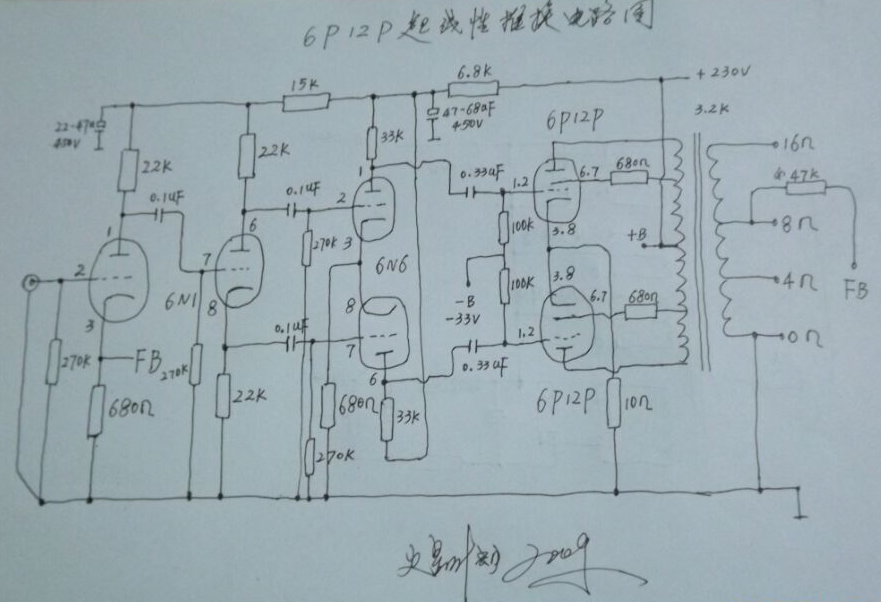 6P12P超线性推挽电路图
+230V
15K
6.8K
3.2K
22-470
450V
47-68uF
450V
6P12P
16Ω
33K
22K
22K
47K
0.1uF
0.1uF
0.33uF
1
6
1
2
1.2
6.7
680Ω
100K
3.8
8Ω
270K
3
+B
2
7
6N1
8
6N6
8
-B
-33V
100K
3.8
6.7
680Ω
4Ω
FB
3
0.1uF
7
1.2
0Ω
FB
270K
270K
6
0.33uF
680Ω
22K
680Ω
33K
6P12P
10Ω
270K
2009